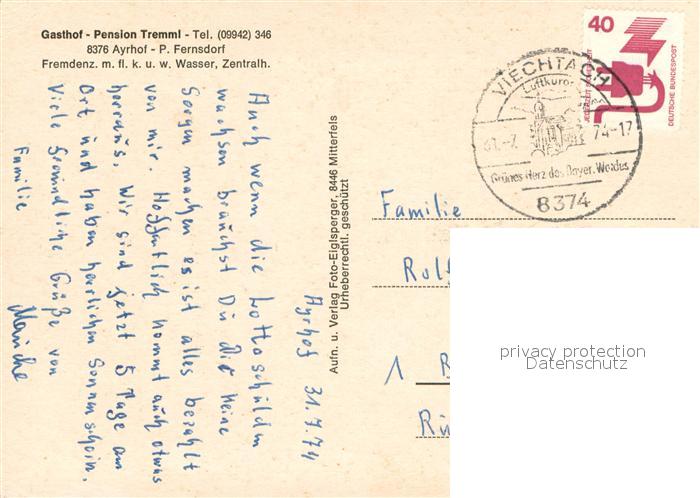 Gasthof - Pension Tremml - Tel. (09942) 346
8376 Ayrhof - P. Fernsdorf
Fremdenz. m. fl. k. u. w. Wasser, Zentralh.
Ayrhof 31.7.74
Auch wenn die Lottoschulden
wachsen brauchst Du Dir keine
Sorgen machen es ist alles bezahlt
von mir. Hoffentlich kommt auch etwas
herraus. Wir sind jetzt 5 Tage am
Ort und haben herrlichen Sonnenschein.
Viele freundliche Grüße von
Familie
Aufn. u. Verlag Foto-Eiglsperger, 8446 Mitterfels
Urheberrechtl. geschützt
40
JEDERZEIT SICHERHEIT
DEUTSCHE BUNDESPOST
VIECHTACH
Luftkuror
74-17
Grünes Herz des Bayer. Waldes
8374
Familie
Rolf
1 R
Rü
privacy protection
Datenschutz